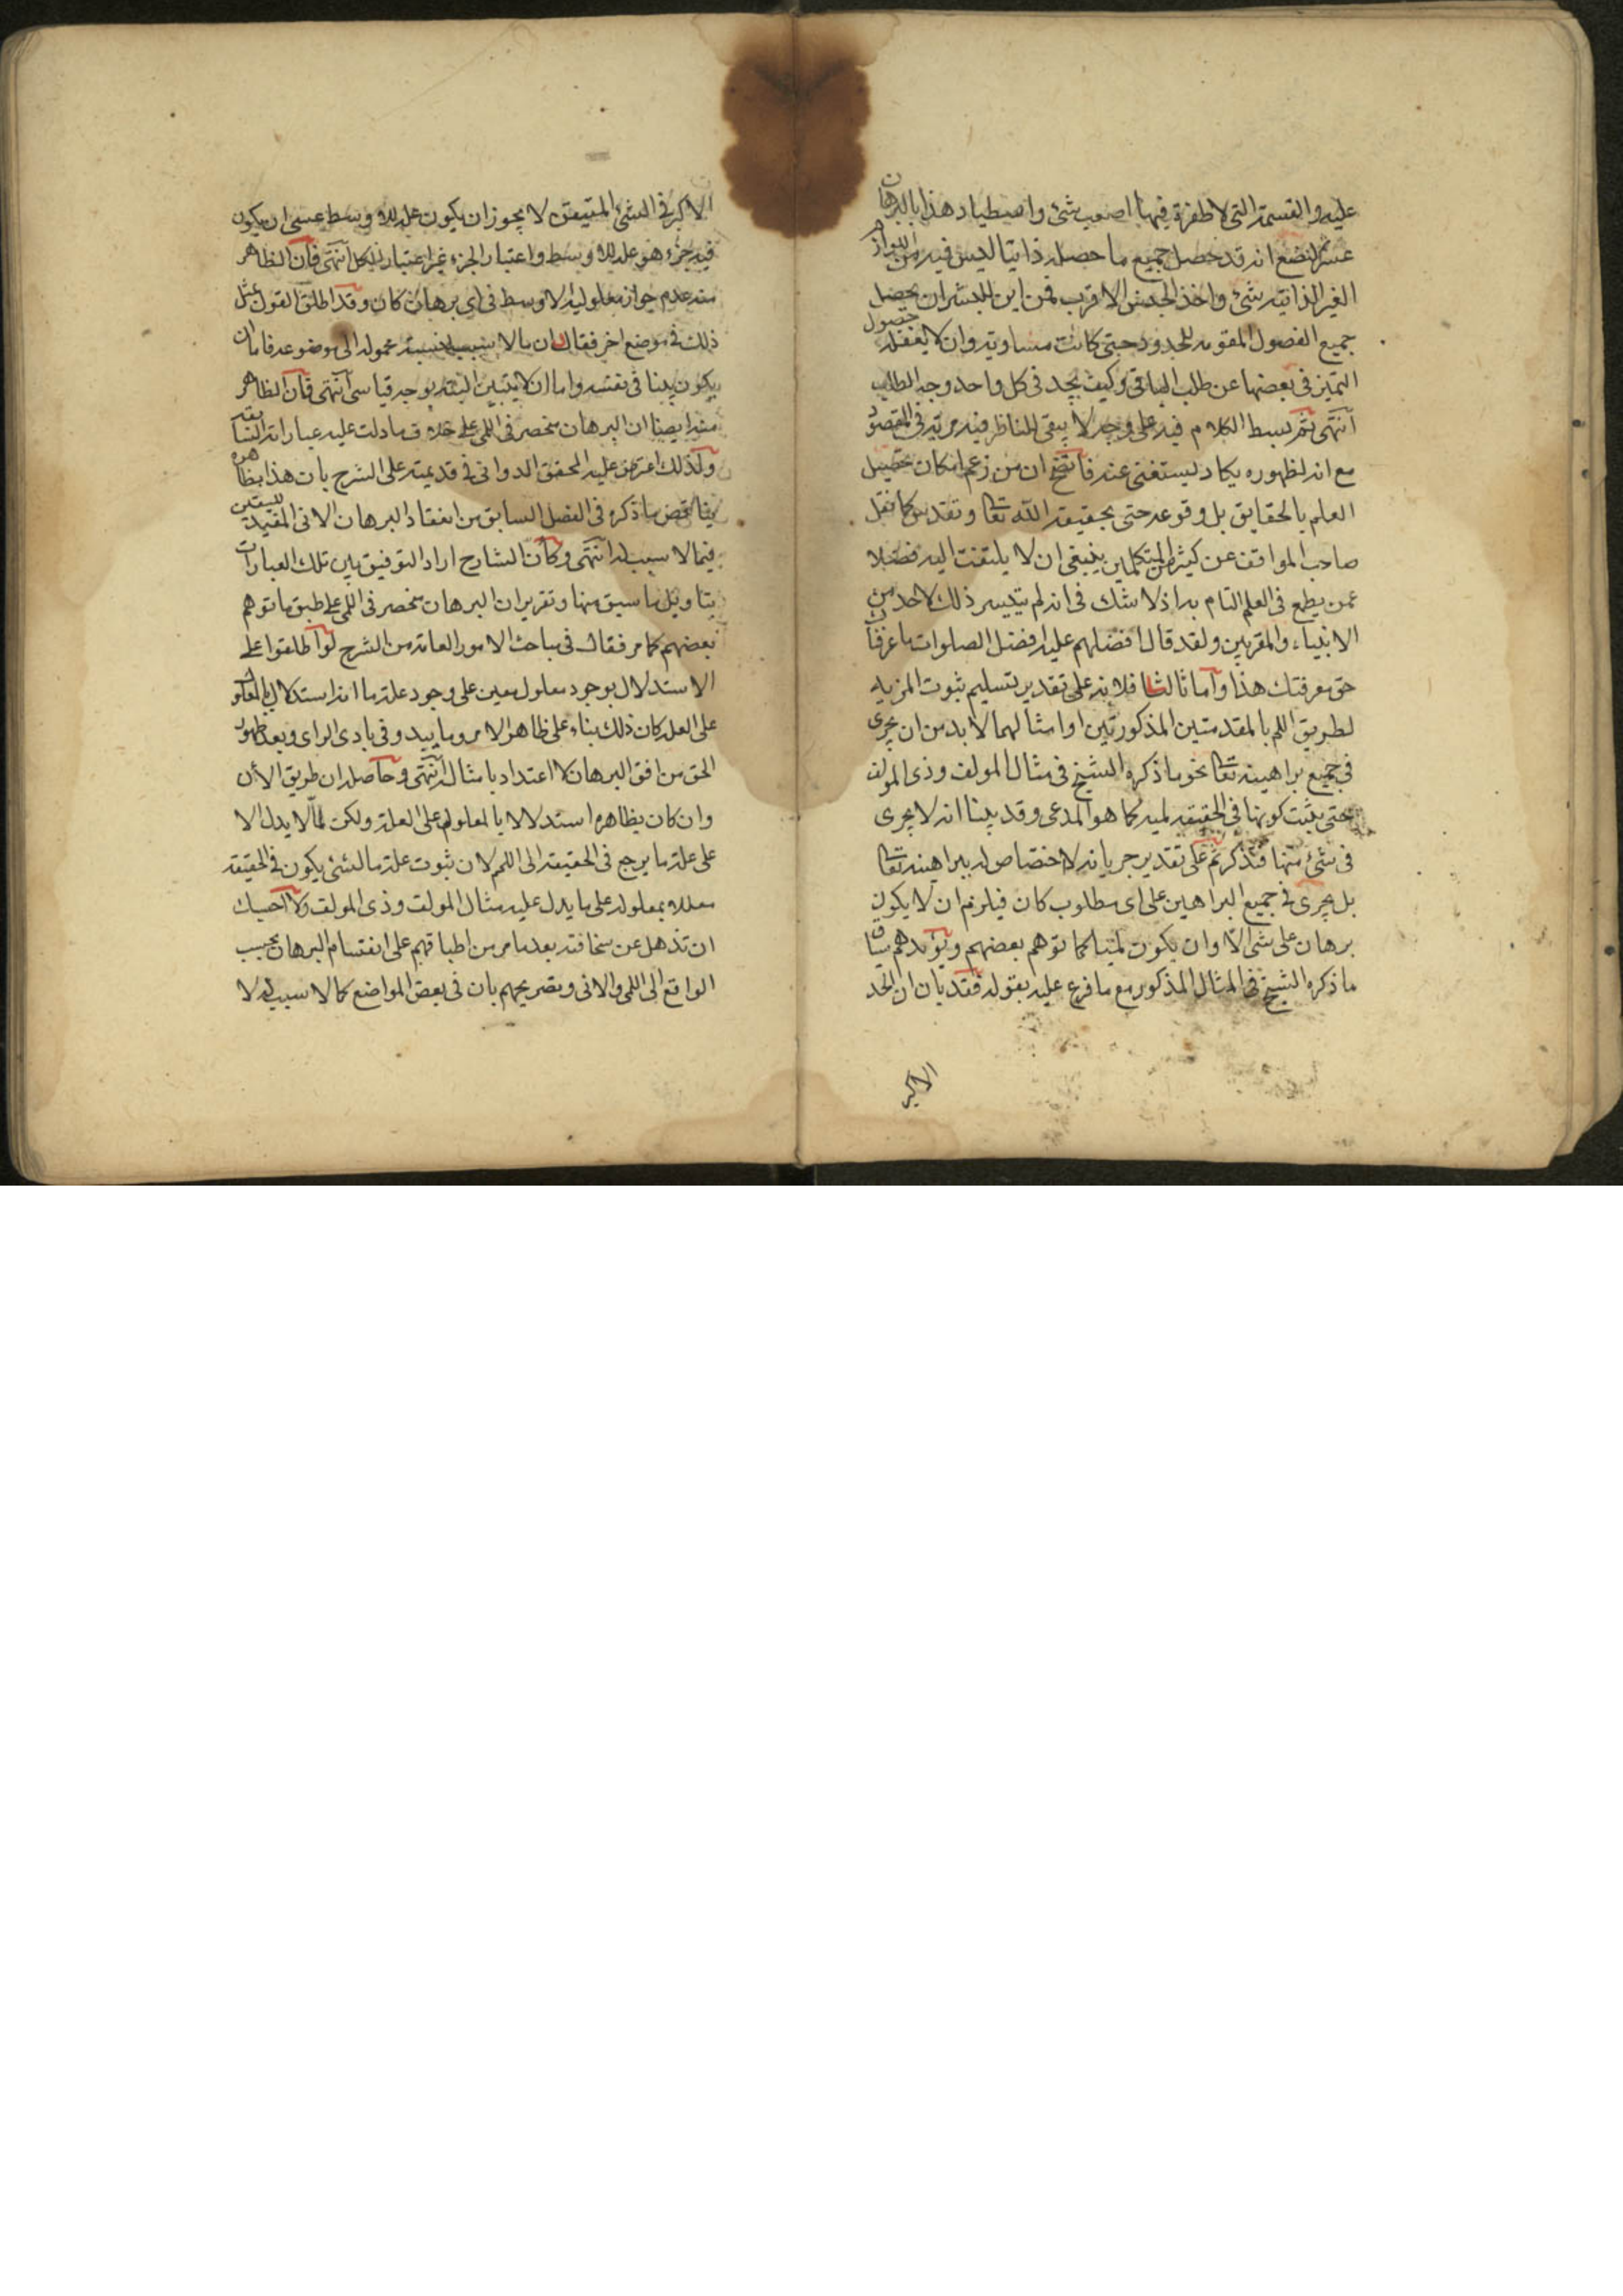 عليه والقسمة التي لا طفرة فيها اصعب شئ واصطياد هذا بالبرهان
عسر لنضع انه قد حصل جميع ما حصله ذاتيا ليس فيه من اللوازم
الغير الذاتية شئ واخذ الجنس الاقرب فمن اين للبشر ان يحصل
جميع الفصول المقومه للحدود حتى كانت مساوية وان لا يغفله حصول
التميز في بعضها عن طلب الباقي وكيف يجد في كل واحد وجه الطلب
انتهى ثم بسط الكلام فيه على وجه لا يبقى للناظر فيه مرية في المقصود
مع انه لظهوره يكاد يستغنى عنه فاتضح ان من زعم امكان تحصيل
العلم بالحقايق بل وقوعه حتى بحقيقه الله تعا وتقدس كما نقل
صاحب المواقف عن كثير من المتكلمين ينبغي ان لا يلتفت اليه فضلا
عمن يطمع في العلم التام به اذ لا شك في انه لم يتيسر ذلك لاحد من
الانبياء والمقربين ولقد قال افضلهم عليه افضل الصلوات ما عرفناك
حق معرفتك هذا واما ثالثا فلانه على تقدير تسليم ثبوت المزية
لطريق اللم بالمقدمتين المذكورتين او امثالهما لا بد من ان يجرى
في جميع براهينه تعا نحو ما ذكره الشيخ في مثال المولف وذى المولف
حتى يثبت كونها في الحقيقه لميه كما هو المدعى وقد بينا انه لا يجرى
في شئ منها فتذكر ثم على تقدير جريانه لا اختصاص له ببراهينه تعا
بل يجرى في جميع البراهين على اى مطلوب كان فيلزم ان لا يكون
برهان على شئ الا وان يكون لميا كما توهم بعضهم ويؤيد هم سياق
ما ذكره الشيخ في المثال المذكور مع ما فرع عليه بقوله فقد بان ان الحد
الاكبر
الاكبر في الشئ المتيقن لا يجوز ان يكون عله للاوسط عسى ان يكون
فيه جزء هو عله للاوسط واعتبار الجزء غير اعتبار للكل انتهى فان الظاهر
منه عدم جواز معلولية الاوسط في اى برهان كان وقد اطلق القول بمثل
ذلك في موضع اخر فقال ان ما لا سبب لنسبة محموله الى موضوعه فاما ان
يكون بينا في نفسه واما ان لا يتبين البته بوجه قياسى انتهى فان الظاهر
منه ايضا ان البرهان منحصر في اللمى على خلاف ما دلت عليه عباراته السابقه
ولذلك اعترض عليه المحقق الدوانى في قديمته على الشرح بان هذا بظاهره
يناقض ما ذكره في الفصل السابق من انعقاد البرهان الانى المفيد لليقين
فيما لا سبب له انتهى وكان الشارح اراد التوفيق بين تلك العبارات
بتاويل ما سبق منها وتقرير ان البرهان منحصر في اللمى على طبق ما توهم
بعضهم كما مر فقال في مباحث الامور العامة من الشرح لو اطلقوا على
الاستدلال بوجود معلول معين على وجود علة ما انه استدلال بالمعلول
على العله كان ذلك بناء على ظاهر الامر وما يبدو في بادى الراى وبعد ظهور
الحق من افق البرهان لا اعتداد بامثاله انتهى وحاصله ان طريق الان
وان كان بظاهره استدلالا بالمعلول على العلة ولكن لما لا يدل الا
على علة ما يرجع في الحقيقه الى اللم لان ثبوت علة ما لشئ يكون في الحقيقه
معلله بمعلوله على ما يدل عليه مثال المولف وذى المولف ولا احسبك
ان تذهل عن سخافته بعد ما مر من اطباقهم على انقسام البرهان بحسب
الواقع الى اللمى والانى وتصريحهم بان في بعض المواضع كما لا سبب له لا